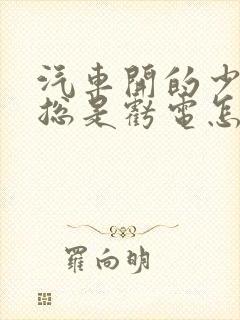 汽車開的少
總是虧電怎
羅向明